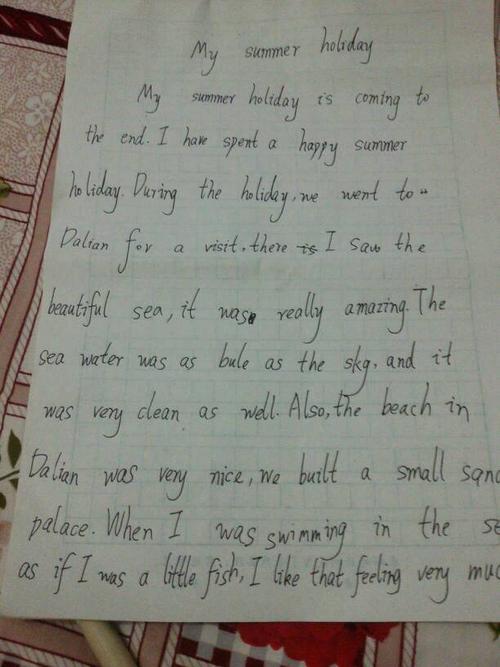 My summer holiday
My summer holiday is coming to
the end. I have spent a happy summer
holiday. During the holiday, we went to
Dalian for a visit, there is I saw the
beautiful sea, it was really amazing. The
sea water was as bule as the skg, and it
was very clean as well. Also, the beach in
Dalian was very nice, we built a small sand
palace. When I was swimming in the se
as if I was a little fish, I like that feeling very muc